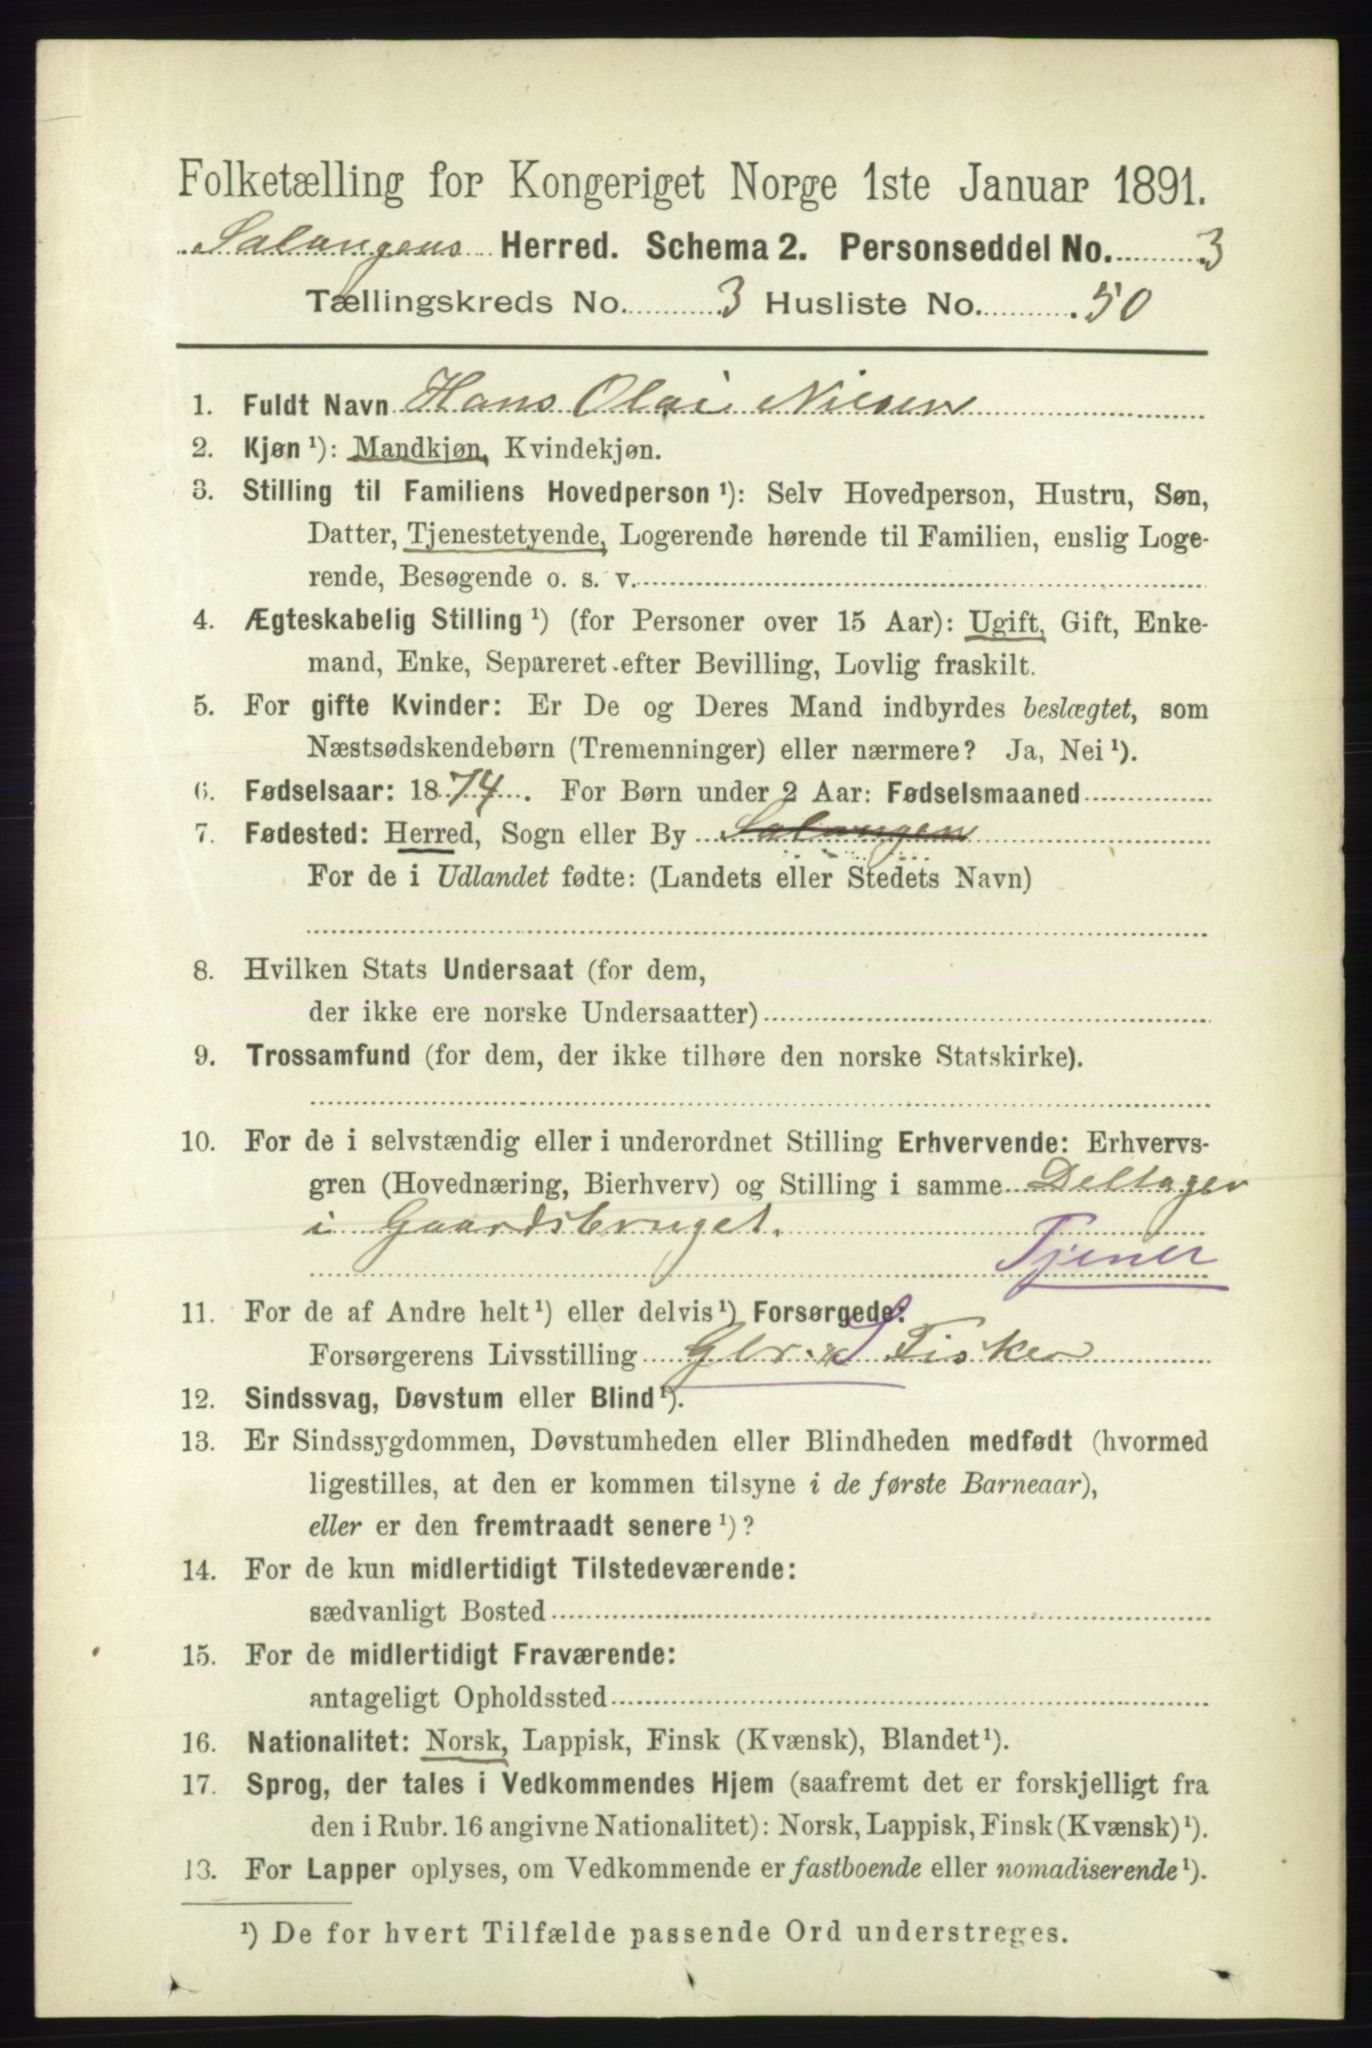 Folketælling for Kongeriget Norge 1ste Januar 1891.
Salangens Herred. Schema 2. Personseddel No. 3
Tællingskreds No. 3 Husliste No. 50
1. Fuldt Navn Hans Olai Nilsen
2. Kjøn ¹): Mandkjøn, Kvindekjøn.
3. Stilling til Familiens Hovedperson ¹): Selv Hovedperson, Hustru, Søn,
Datter, Tjenestetyende, Logerende hørende til Familien, enslig Loge-
rende, Besøgende o. s. v.
4. Ægteskabelig Stilling ¹) (for Personer over 15 Aar): Ugift, Gift, Enke-
mand, Enke, Separeret efter Bevilling, Lovlig fraskilt.
5. For gifte Kvinder: Er De og Deres Mand indbyrdes beslægtet, som
Næstsødskendebørn (Tremenninger) eller nærmere? Ja, Nei ¹).
6. Fødselsaar: 1874. For Børn under 2 Aar: Fødselsmaaned
7. Fødested: Herred, Sogn eller By Salangen
For de i Udlandet fødte: (Landets eller Stedets Navn)
8. Hvilken Stats Undersaat (for dem,
der ikke ere norske Undersaatter)
9. Trossamfund (for dem, der ikke tilhøre den norske Statskirke).
10. For de i selvstændig eller i underordnet Stilling Erhvervende: Erhvervs-
gren (Hovednæring, Bierhverv) og Stilling i samme Deltager
i Gaardsbruget.
Tjener
11. For de af Andre helt ¹) eller delvis ¹) Forsørgede:
Forsørgerens Livsstilling Gbr. S Fisker
12. Sindssvag, Døvstum eller Blind ¹).
13. Er Sindssygdommen, Døvstumheden eller Blindheden medfødt (hvormed
ligestilles, at den er kommen tilsyne i de første Barneaar),
eller er den fremtraadt senere ¹)?
14. For de kun midlertidigt Tilstedeværende:
sædvanligt Bosted
15. For de midlertidigt Fraværende:
antageligt Opholdssted
16. Nationalitet: Norsk, Lappisk, Finsk (Kvænsk), Blandet ¹).
17. Sprog, der tales i Vedkommendes Hjem (saafremt det er forskjelligt fra
den i Rubr. 16 angivne Nationalitet): Norsk, Lappisk, Finsk (Kvænsk) ¹).
13. For Lapper oplyses, om Vedkommende er fastboende eller nomadiserende ¹).
¹) De for hvert Tilfælde passende Ord understreges.